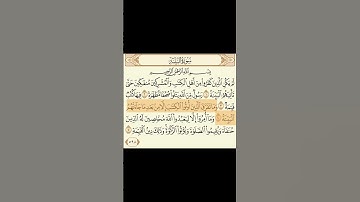 سورة البينة
بسم الله الرحمن الرحيم
لم يكن الذين كفروا من أهل الكتب والمشركين منفكين حتى
تأتيهم البينة ١ رسول من الله يتلوا صحفا مطهرة ٢ فيها كتب
قيمة ٣ وما تفرق الذين أوتوا الكتب إلا من بعد ما جاءتهم
البينة ٤ وما أمروا إلا ليعبدوا الله مخلصين له الدين
حنفاء ويقيموا الصلوة ويؤتوا الزكوة وذلك دين القيمة ٥
٥٩٨